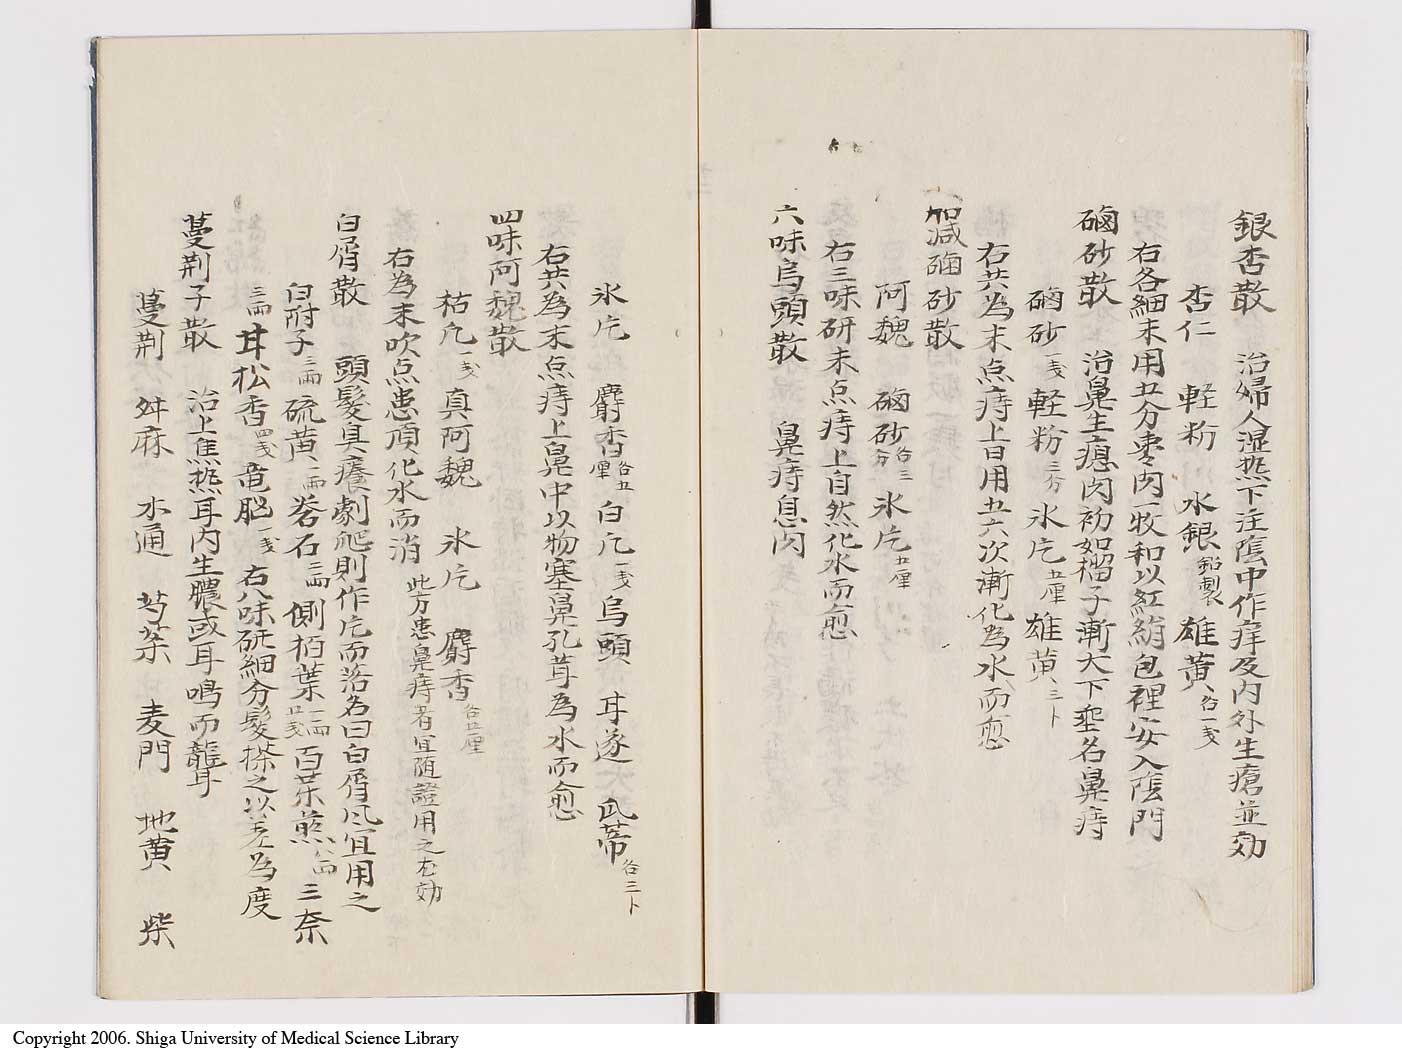 銀杏散 治婦人湿热下注陰中作痒及内外生瘡並効
杏仁 軽粉 水銀鉛製 雄黄各一戔
右各細末用五分枣肉一牧和以紅絹包裡安入陰門
磠砂散 治鼻生瘜肉初如榴子漸大下垂名鼻痔
磠砂一戔 軽粉三分 氷片五厘 雄黄三卜
右共為末点痔上日用五六次漸化為水而愈
加減磠砂散
阿魏 磠砂各三分 氷片五厘
右三味研末点痔上自然化水而愈
六味烏頭散 鼻痔息肉
氷片 麝香各五厘 白凢一戔 烏頭 甘遂 瓜蒂各三卜
右共為末点痔上鼻中以物塞鼻孔茸為水而愈
四味阿魏散
枯凢一戔 真阿魏 氷片 麝香各五厘
右為末吹点患頂化水而消 此方患鼻痔者宜随證用之尤効
白屑散 頭髮臭癢劇爬則作片而落名曰白屑风宜用之
白附子三両 硫黄一両 礬石二両 側栢葉一両五戔 百茶煎八両 三奈
三両 甘松香四戔 竜脳一戔 右八味研細分髮搽之以差為度
蔓荆子散 治上焦热耳内生膿或耳鳴而聾耳
蔓荆 舛麻 木通 芍薬 麦門 地黄 柴
Copyright 2006. Shiga University of Medical Science Library